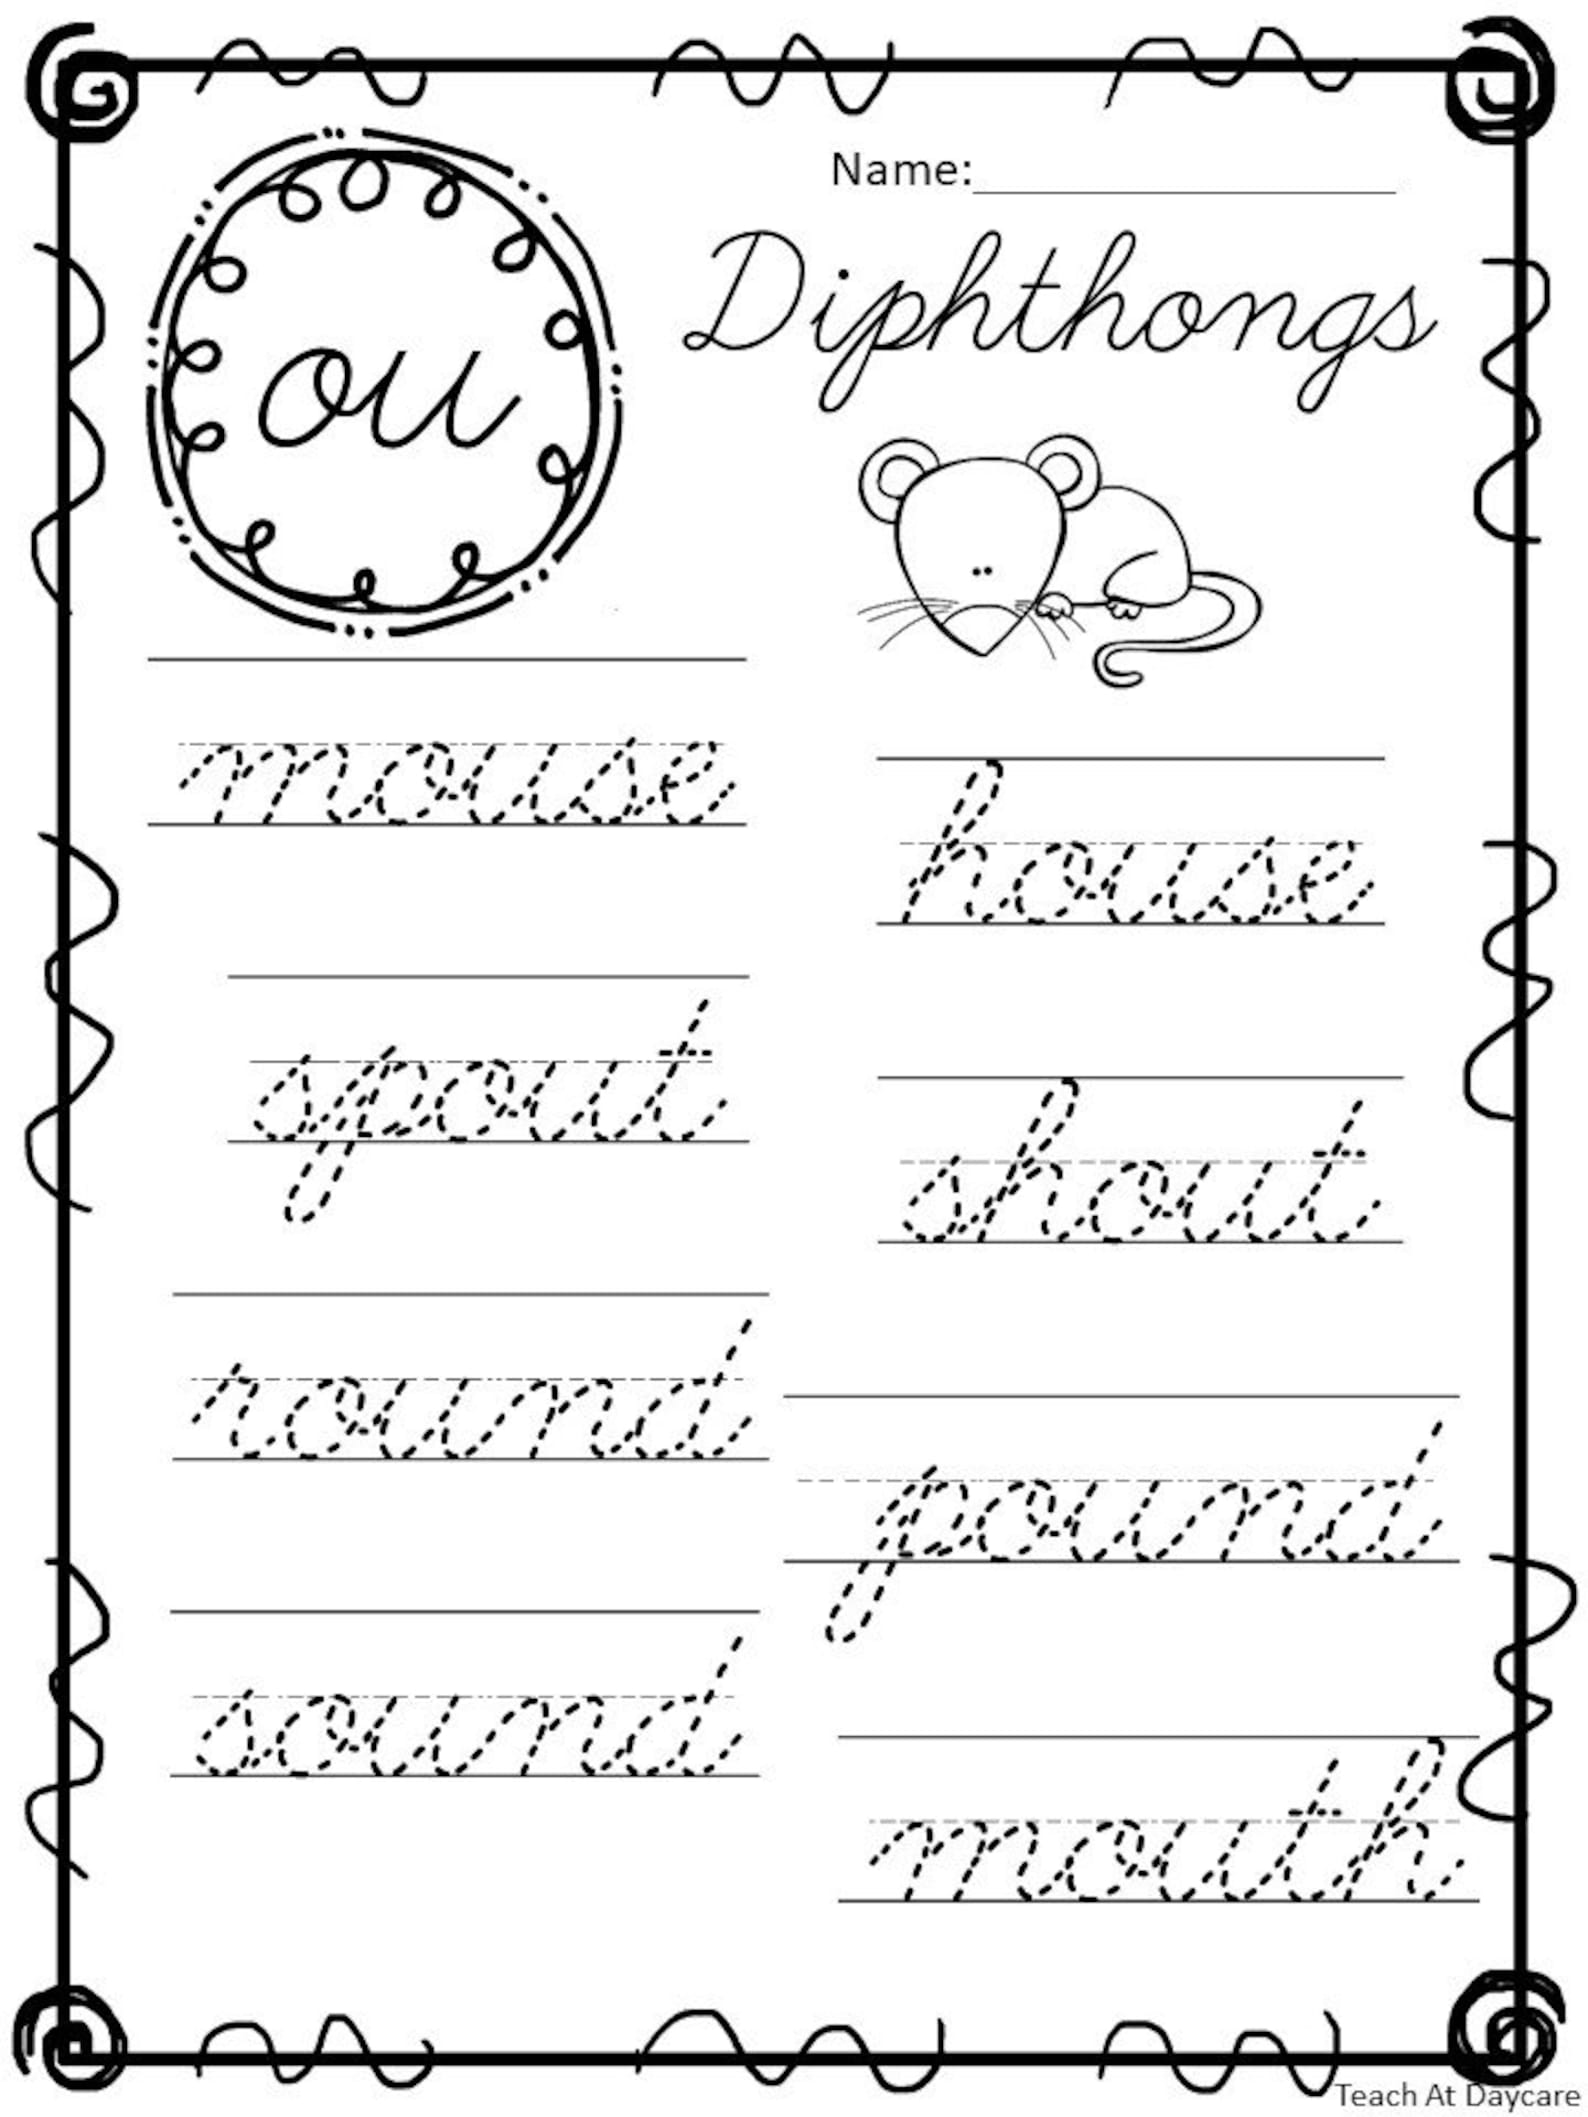 Name:
Diphthongs
ou
mouse
house
spout
shout
round
pound
sound
mouth
Teach At Daycare